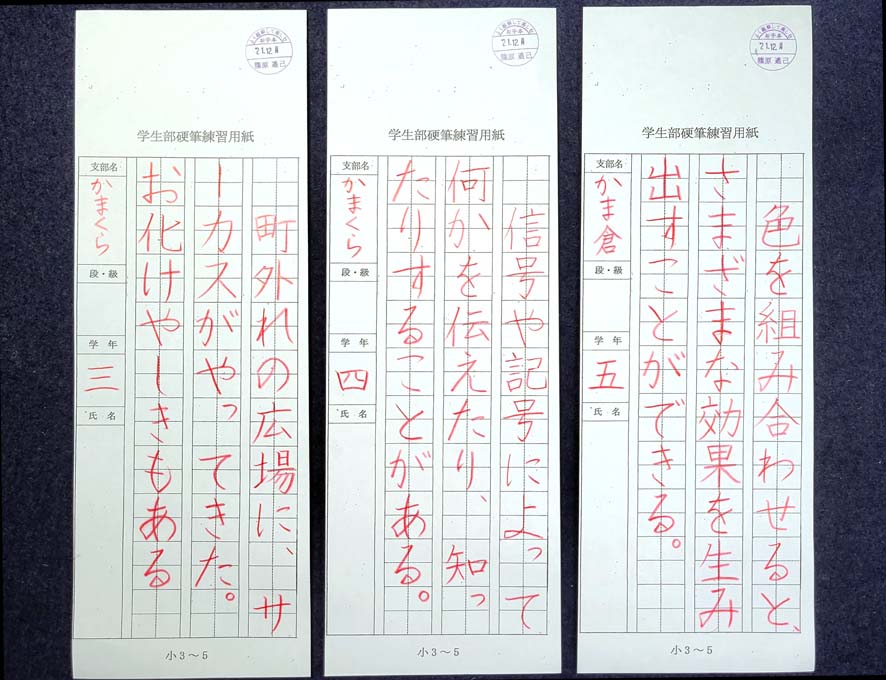 お手本
'21.12月
学生部硬筆練習用紙
町外れの広場に、サ
ーカスがやってきた。
お化けやしきもある
支部名
かまくら
段・級
学年
三
氏名
小3～5
お手本
'21.12月
学生部硬筆練習用紙
信号や記号によって
何かを伝えたり、知っ
たりすることがある。
支部名
かまくら
段・級
学年
四
氏名
小3～5
お手本
'21.12月
学生部硬筆練習用紙
色を組み合わせると、
さまざまな効果を生み
出すことができる。
支部名
かま倉
段・級
学年
五
氏名
小3～5